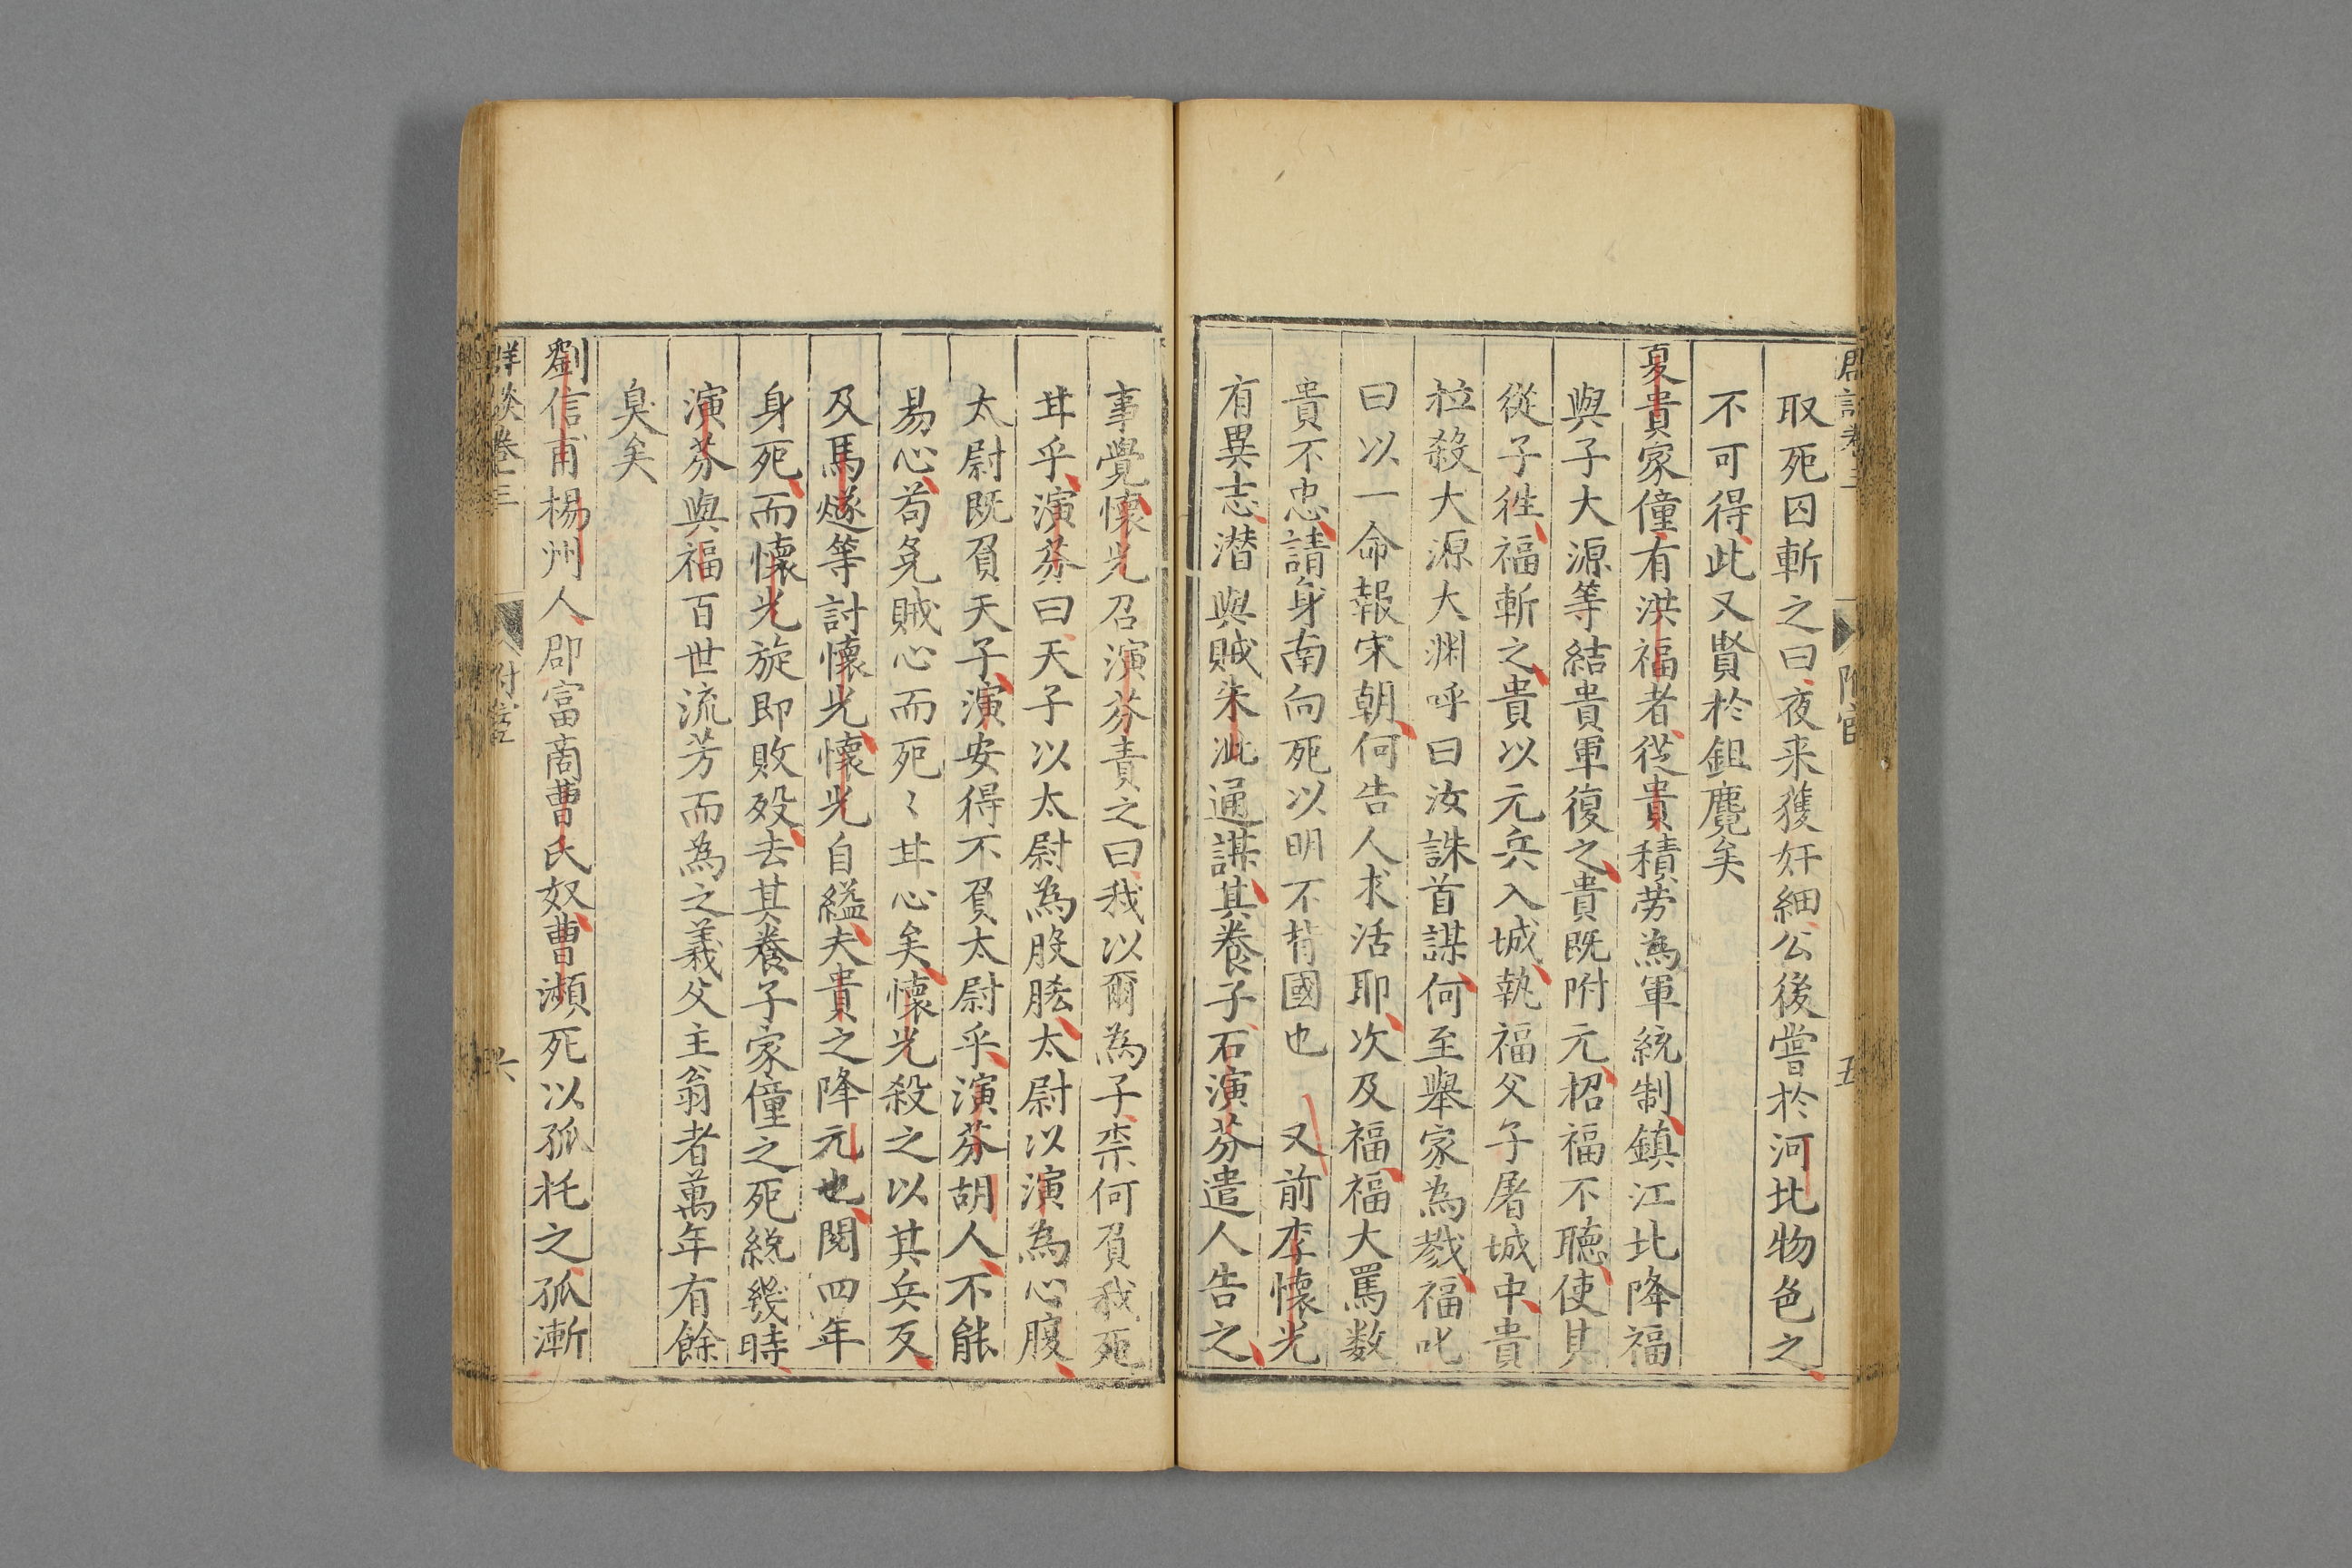 取死囚斬之曰夜来獲奸細公後嘗於河北物色之
不可得此又賢於鉏麑矣
夏貴家僮有洪福者從貴積劳為軍統制鎮江北降福
與子大源等結貴軍復之貴既附元招福不聴使其
從子徃福斬之貴以元兵入城執福父子屠城中貴
柆殺大源大渊呼曰汝誅首謀何至舉家為戮福叱
曰以一命報宋朝何告人求活耶次及福福大罵数
貴不忠請身南向死以明不背國也 又前李懷光
有異志潜與賊朱泚通謀其養子石演芬遣人告之
事覺懷光召演芬責之曰我以爾為子柰何負我死
甘乎演芬曰天子以太尉為股肱太尉以演為心腹
太尉既負天子演安得不負太尉乎演芬胡人不能
易心苟免賊心而死〻甘心矣懷光殺之以其兵反
及馬燧等討懷光懷光自縊夫貴之降元也閱四年
身死而懷光旋即敗殁去其養子家僮之死絻幾時
演芬與福百世流芳而為之義父主翁者萬年有餘
臭矣
劉信甫楊州人郡富商曹氏奴曹瀕死以孤托之孤漸
群談卷三
六
五